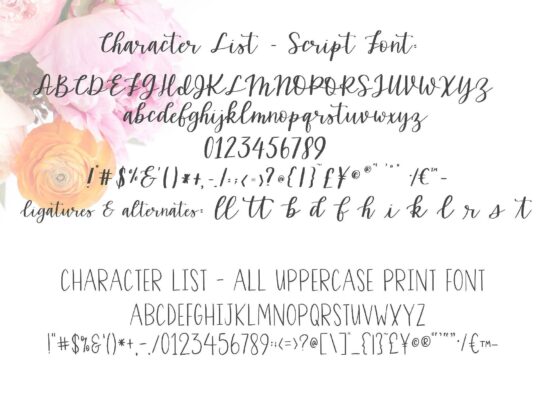 Character List - Script Font:
ABCDEFGHIJKLMNOPQRSTUVWXYZ
abcdefghijklmnopqrstuvwxyz
0123456789
!"#$%&'()*+,-./:;<=>?@{|}~£¥©®“”‘’"·/€™-
ligatures & alternates: ll tt b d f h i k l r s t
CHARACTER LIST - ALL UPPERCASE PRINT FONT
ABCDEFGHIJKLMNOPQRSTUVWXYZ
!"#$%&'()*+,-./0123456789:;<=>?@[\]^_{|}~£¥©®“‘’”·/€™-